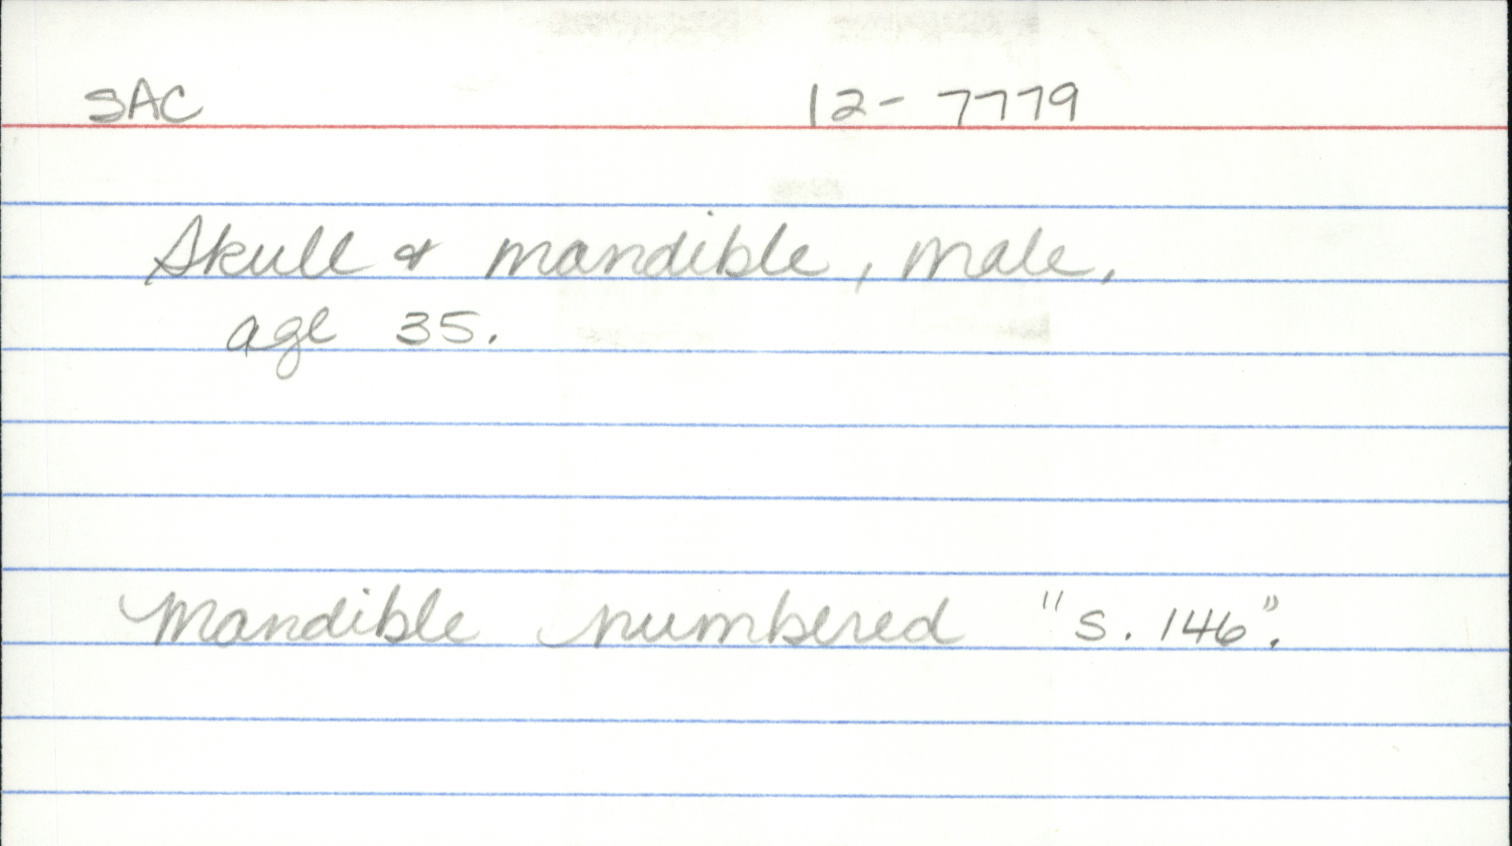 SAC 12-7779
Skull & mandible, male,
age 35.
Mandible numbered "S. 146".